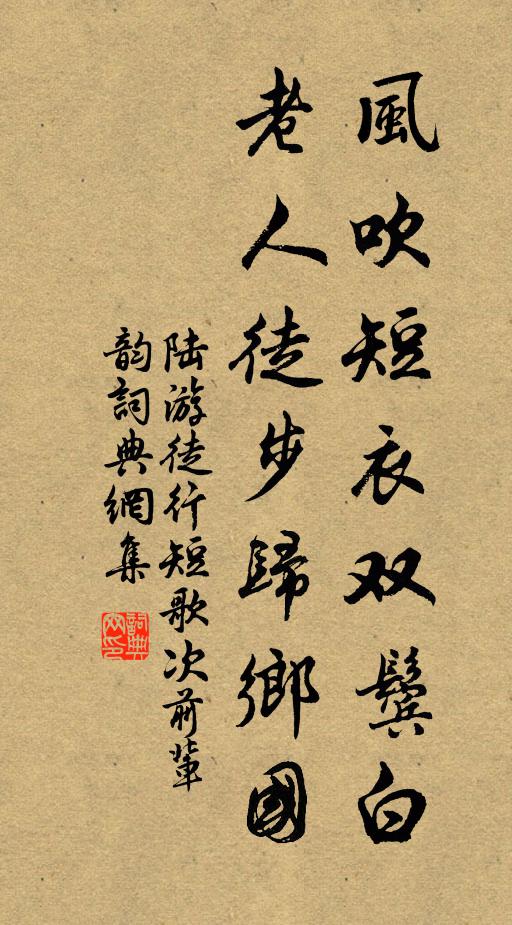 風吹短衣双鬓白
老人徒步歸鄉國
陆游徒行短歌次前輩
韵詞典網集
詞典網印